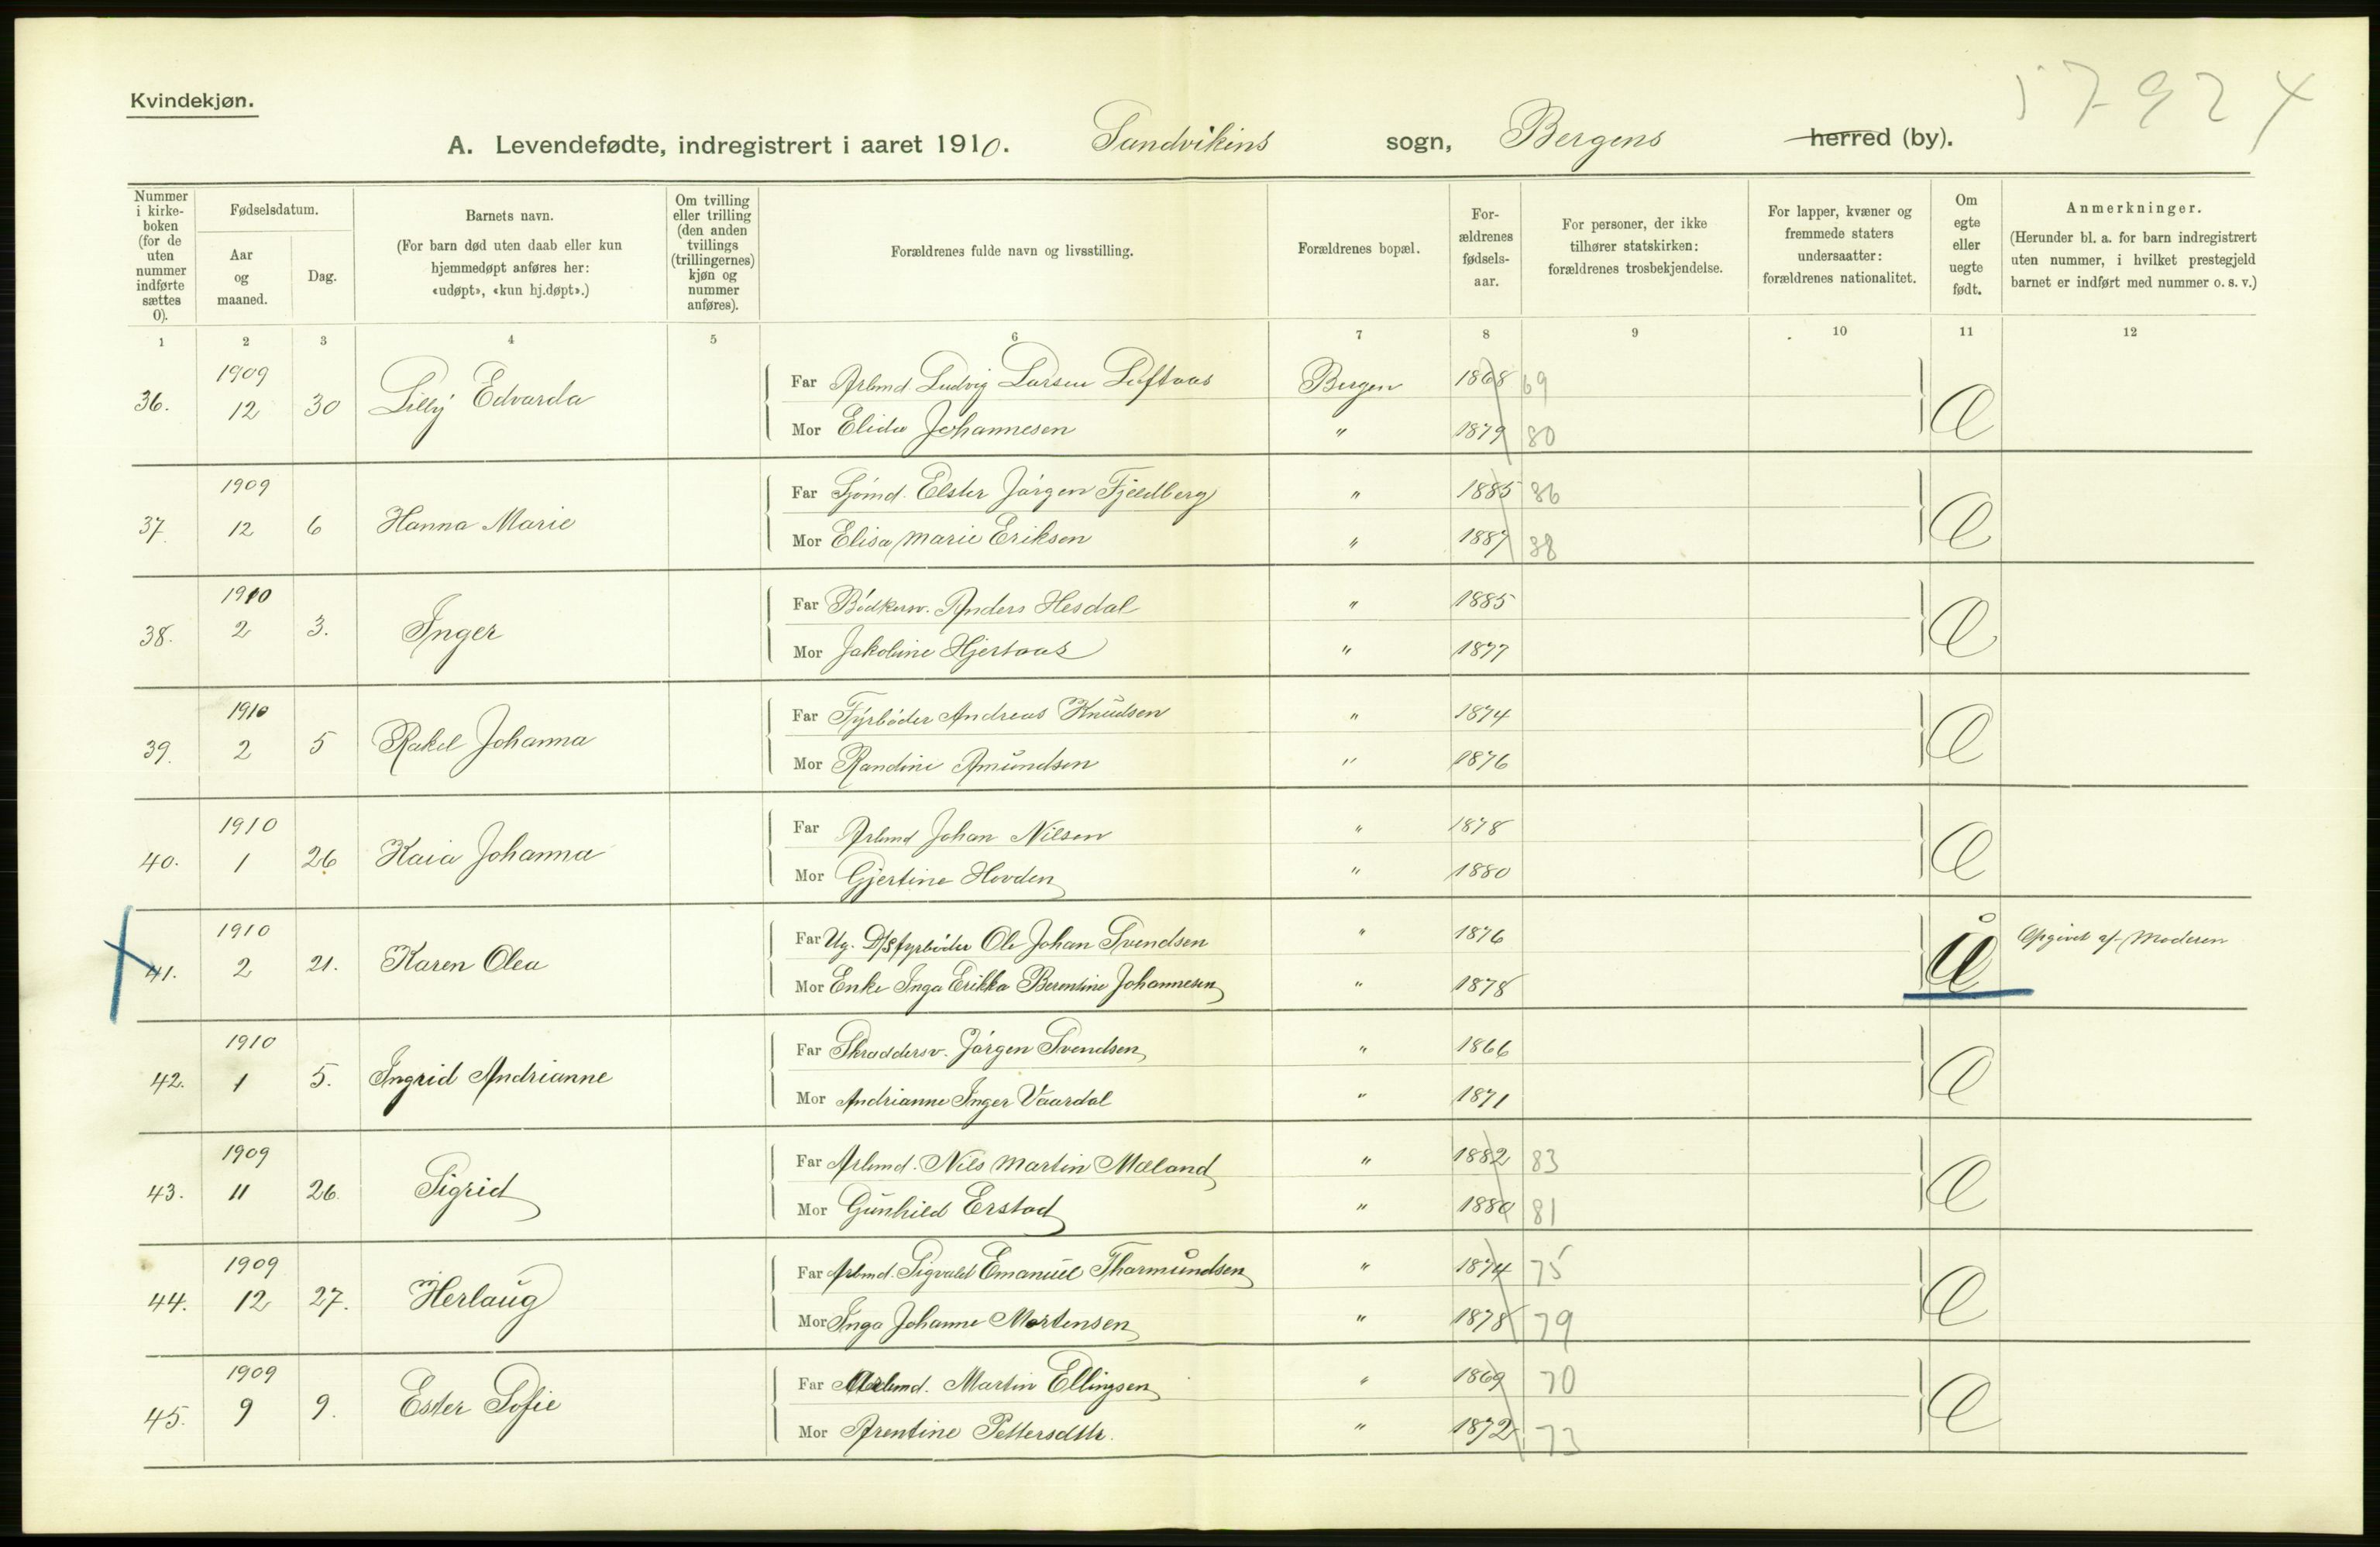 Kvindekjøn.
57924
A. Levendefødte, indregistrert i aaret 1910. Sandvikens sogn, Bergens herred (by).
Nummer i kirkeboken (for de uten nummer indførte sættes 0).
Fødselsdatum.
Aar og maaned.
Dag.
Barnets navn.
(For barn død uten daab eller kun hjemmedøpt anføres her: «udøpt», «kun hj.døpt».)
Om tvilling eller trilling (den anden tvillings (trillingernes) kjøn og nummer anføres).
Forældrenes fulde navn og livsstilling.
Forældrenes bopæl.
Forældrenes fødselsaar.
For personer, der ikke tilhører statskirken: forældrenes trosbekjendelse.
For lapper, kvæner og fremmede staters undersaatter: forældrenes nationalitet.
Om egte eller uegte født.
Anmerkninger.
(Herunder bl. a. for barn indregistrert uten nummer, i hvilket prestegjeld barnet er indført med nummer o. s. v.)
1 2 3 4 5 6 7 8 9 10 11 12
36. 1909 12 30 Lilly Edvarda Far Arbmd Ludvig Larsen Loftaas Bergen 1868 69 E
Mor Elida Johannesen " 1879 80
37. 1909 12 6 Hanna Marie Far Sjømd. Elster Jørgen Fjeldberg " 1885 86 E
Mor Elisa Marie Eriksen " 1887 88
38. 1910 2 3. Inger Far Bødkersv. Anders Hesdal " 1885 E
Mor Jakobine Hjertaas " 1877
39. 1910 2 5 Rakel Johanna Far Fyrbøder Andreas Knudsen " 1874 E
Mor Randine Amundsen " 1876
40. 1910 1 26 Kaia Johanna Far Arbmd Johan Nilsen " 1878 E
Mor Gjertine Hovden " 1880
41. 1910 2 21. Karen Olea Far Ug. D/S fyrbøder Ole Johan Svendsen " 1876 U Opgivet af Moderen
Mor Enke Inga Erikka Berentine Johannesen " 1878
42. 1910 1 5. Ingrid Andrianne Far Skraddersv. Jørgen Svendsen " 1866 E
Mor Andrianne Inger Vaardal " 1871
43. 1909 11 26. Sigrid Far Arbmd. Nils Martin Mæland " 1882 83 E
Mor Gunhild Erstad " 1880 81
44. 1909 12 27. Herlaug Far Arbmd. Sigvald Emanuel Thormundsen " 1874 75 E
Mor Inga Johanne Mortensen " 1878 79
45. 1909 9 9. Ester Sofie Far Arbmd. Martin Ellingsen " 1869 70 E
Mor Arentine Pettersdtr. " 1872 73